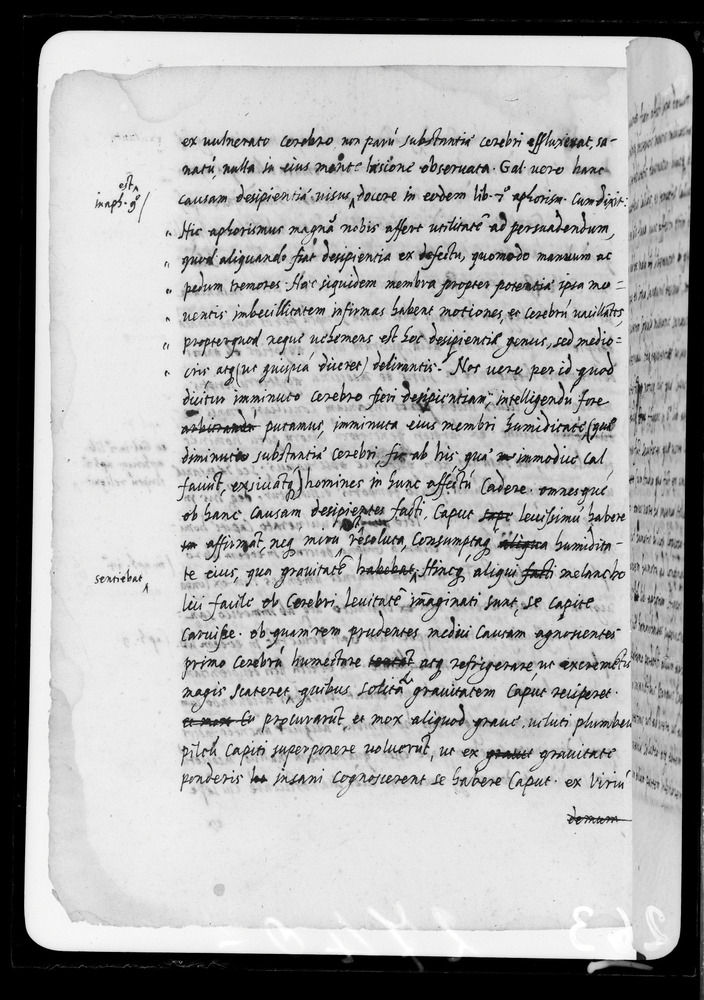 ex vulnerato cerebro non parū substantiæ cerebri effluxerat, sa-
natū nulla in eius mente læsione observata. Gal. vero hanc
est
in aph. 9º /
causam desipientiæ visus ^ docere in eodem lib. 7º aphorism. Cum dixit:
" Hic aphorismus magnā nobis affert utilitatē ad persuadendum,
" quod aliquando fiat desipientia ex defectu, quomodo manuum ac
" pedum tremores. Hæc siquidem membra propter potentiæ ipsa mo=
ventis imbecillitatem infirmas habent motiones, et cerebrū vacillās,
" propterquod neque vehemens est hoc desipientiæ genus, sed medio=
" cris atq; (ut quispiā diceret) delirantis. Nos vero per id quod
dicitur imminuto cerebro fieri desipientiam, intelligendū fore
putamus, imminuta eius membri humiditate (quæ
diminuta substantia cerebri fit ab his, quæ immodice cal
faciūt, exsiccātq;) homines in hunc affectū cadere. omnesque
ob hanc causam desipientes facti, caput levissimū habere
affirmāt, neq; mirū resoluta, consumptaq; aliqua humidita-
te eius, qua gravitatē habebat, Hincq; aliqui facti melancho
sentiebat ^
lici facile ob cerebri levitatē imaginati sunt, se capite
caruisse. ob quam rem prudentes medici causam agnoscentes
primo cerebrū humectare atq; refrigerare, ut excremētis
magis scateret, quibus solitā gravitatem caput reciperet.
et mox cū procurarūt, et mox aliquod grave, veluti plumbeū
pileū capiti superponere voluerūt, ut ex gravitate
ponderis insani cognoscerent se habere caput. ex viriū
demum